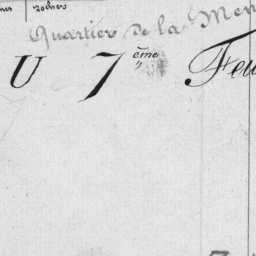 Rochers
Quartier de la
U 7ème Feu